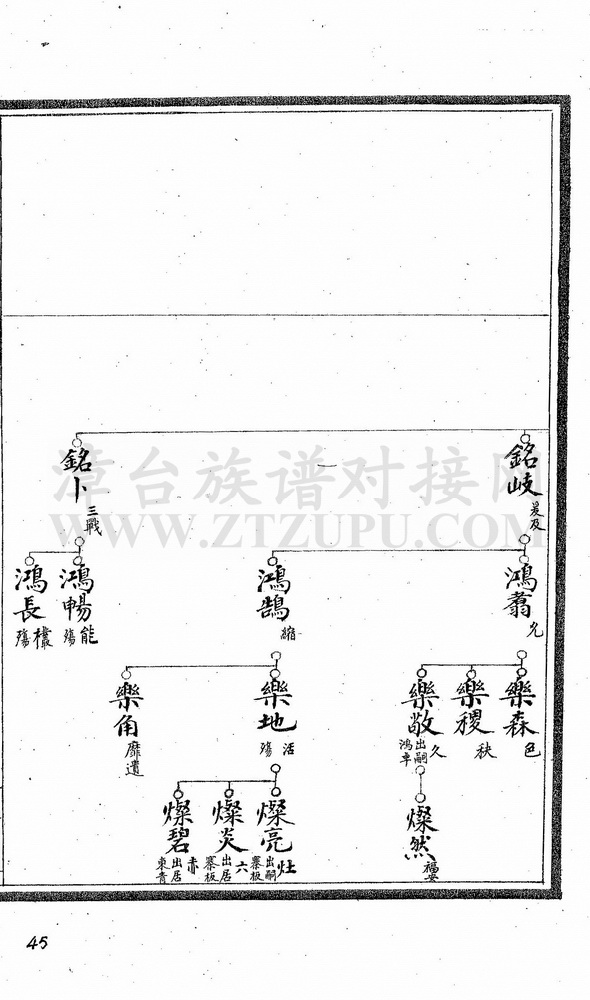 漳台族谱对接网
WWW.ZTZUPU.COM
銘岐
晏及
銘卜
三戰
鴻翥
允
鴻鵠
鴻暢
能
殤
鴻長
殤
樂森
色
樂稷
秧
樂敬
久
出嗣
鴻車
樂地
活
殤
樂角
靡遺
燦然
福安
燦亮
灶
出嗣
寨板
燦炎
六
出居
寨板
燦碧
赤
出居
東青
45